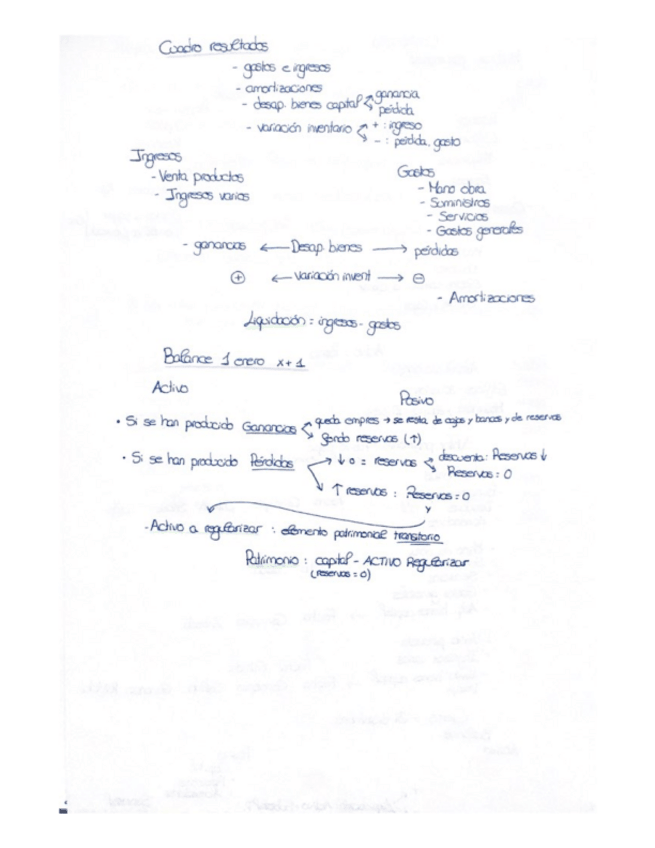 Cuadro resultados
- gastos e ingresos
- amortizaciones
- desap. bienes capital ganancia
pérdida
- variación inventario + : ingreso
- : pérdida, gasto
Ingresos
Gastos
- Venta productos
- Mano obra
- Ingresos varios
- Suministros
- Servicios
- Gastos generales
- ganancias ← Desap. bienes → pérdidas
⊕ ← variación invent → ⊖
- Amortizaciones
Liquidación = ingresos - gastos
Balance 1 enero x+1
Activo
Pasivo
• Si se han producido Ganancias queda empresa → se resta de cajas y bancos y de reservas
fondo reservas (↑)
• Si se han producido Pérdidas → ↓ o = reservas descuenta: Reservas ↓
Reservas = 0
↑ reservas : Reservas = 0
- Activo a regularizar : elemento patrimonial transitorio
Patrimonio : capital - ACTIVO Regularizar
(reservas = 0)